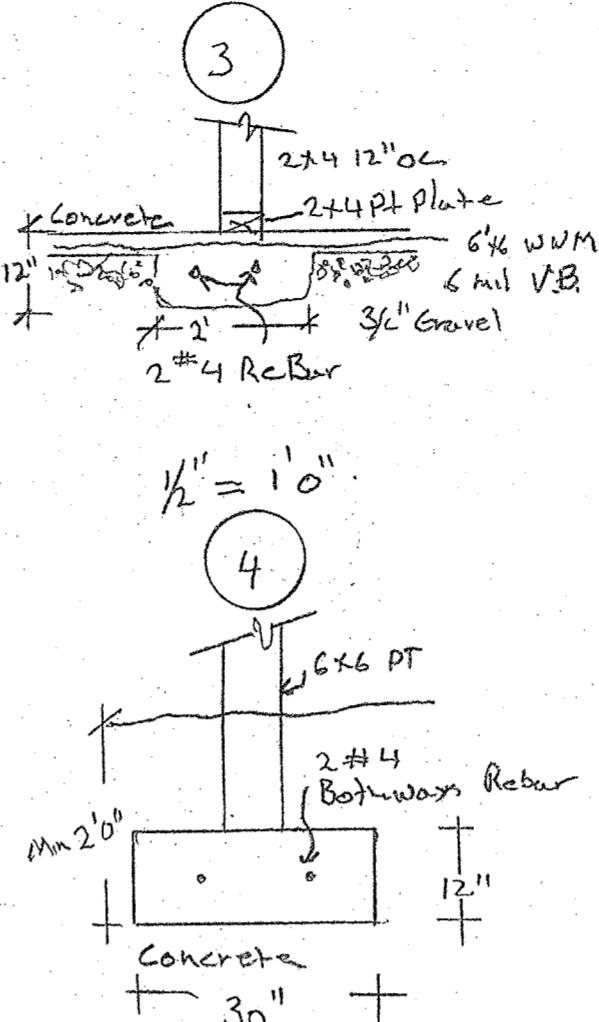 3
2x4 12" oc
2x4 Pt Plate
Concrete
6x6 WWM
12"
6 mil V.B.
2'
3/4" Gravel
2 #4 ReBar
1/2" = 1'0"
4
6x6 PT
2 #4
Bothways Rebar
Min 2'0"
12"
Concrete
30"